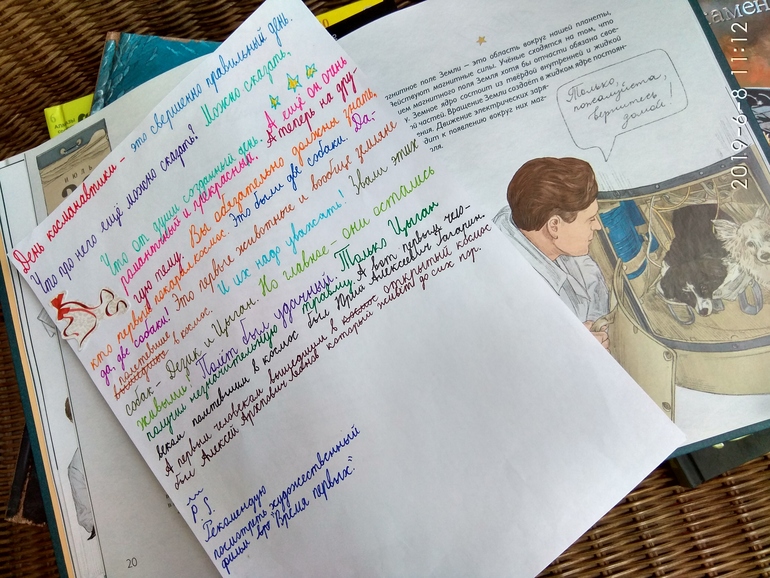 День косманавтики – это свершенно правильный день.
Что про него ещё можно сказать? Можно сказать,
Что от души созданный день. А ещё он очень
романтичный и прекрасный. А теперь на дру-
гую тему. Вы обязательно должны знать,
кто первый покорял космос. Это были две собаки. Да-
да, две собаки! Это первые животные и вообще земляне
полетевшие в космос. И их надо уважать! Звали этих
собак – Дезик и Цыган. Но главное – они остались
живыми. Полёт был удачный. Только Цыган
получил незначительную травму. А вот первым чело-
веком полетевшим в космос был Юрий Алексеевич Гагарин.
А первым человеком вышедшим в космос открытый космос
был Алексей Архипович Леонов который живёт до сих пор.
P.S.
Рекомендую
посмотреть художественный
фильм про "Время первых".
гнитное поле Земли – это область вокруг нашей планеты,
действуют магнитные силы. Учёные сходятся на том, что
ием магнитного поля Земля хотя бы отчасти обязана свое-
. Земное ядро состоит из твёрдой внутренней и жидкой
й частей. Вращение Земли создаёт в жидком ядре постоян-
ения. Движение электрических заря-
дит к появлению вокруг них маг-
ля.
Только,
пожалуйста,
вернитесь
домой!
20
2019-6-8 11:12